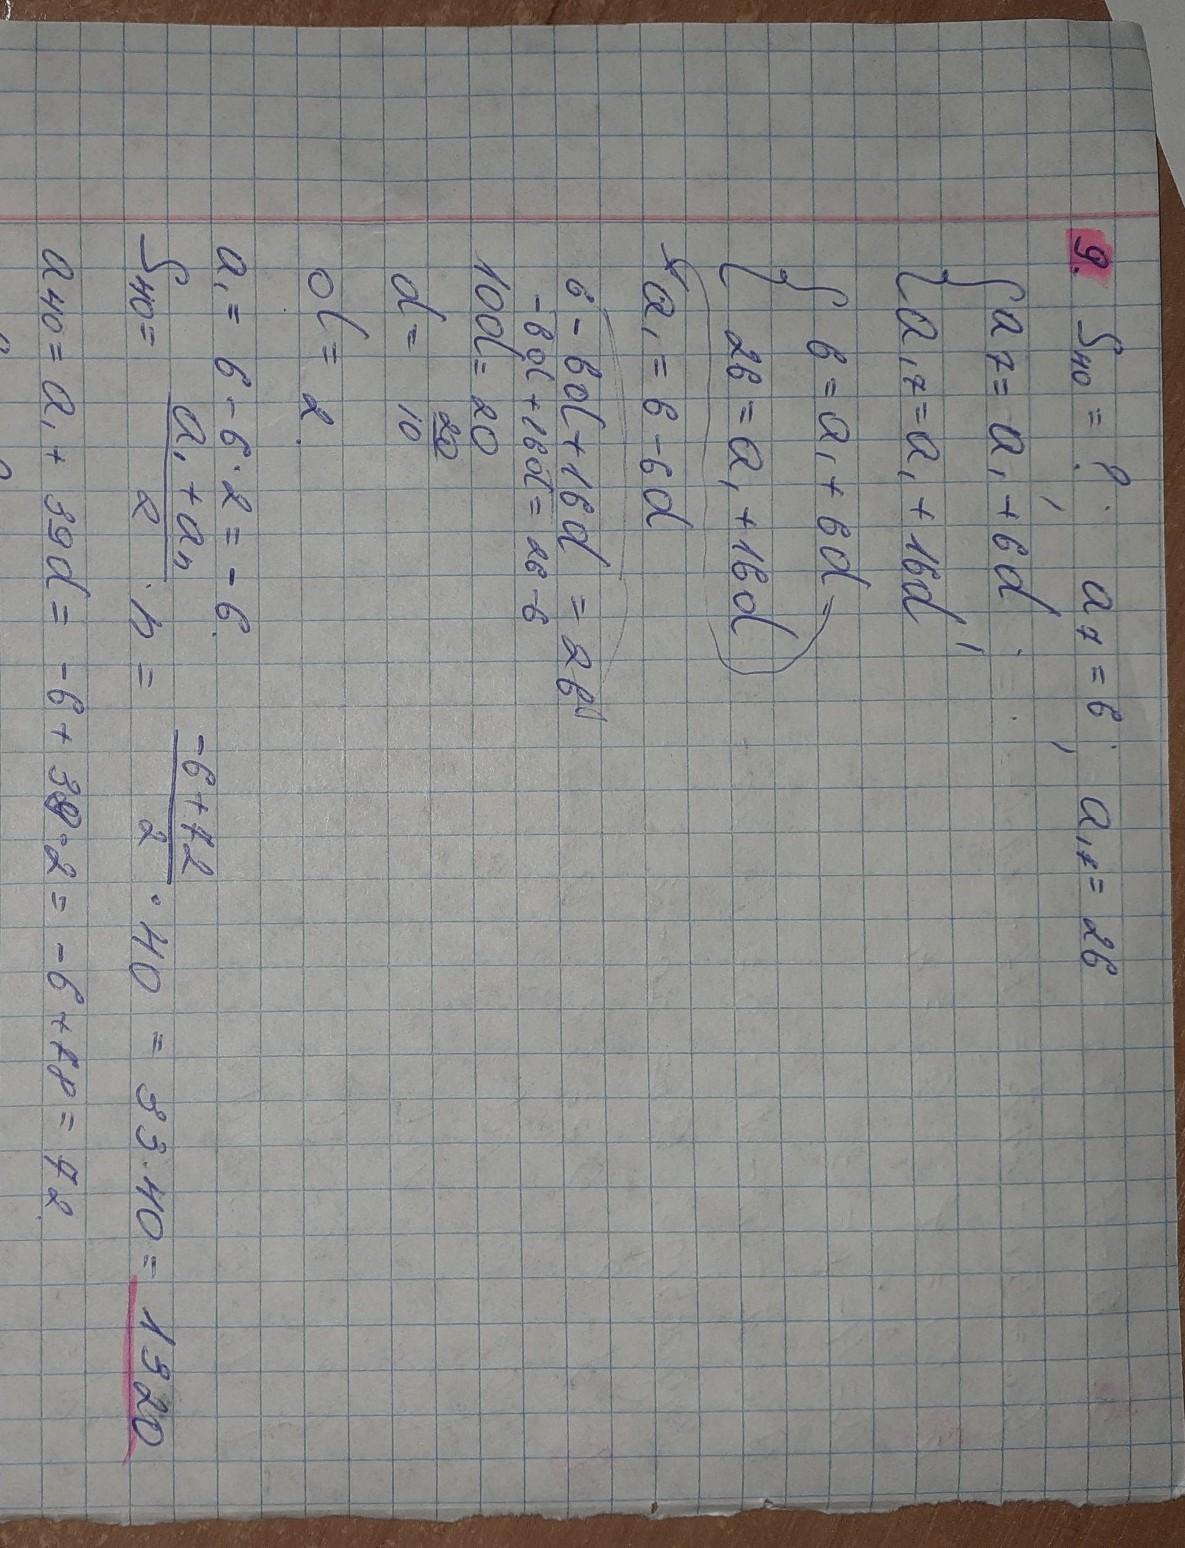 9. S₄₀ = ?; a₇ = 6; a₁₇ = 26
{ a₇ = a₁ + 6d;
{ a₁₇ = a₁ + 16d;
{ 6 = a₁ + 6d
{ 26 = a₁ + 16d
a₁ = 6 - 6d
6 - 6d + 16d = 26
-6d + 16d = 26 - 6
10d = 20
d = 20/10
d = 2.
a₁ = 6 - 6 · 2 = -6.
S₄₀ = (a₁ + aₙ)/2 · n = (-6 + 72)/2 · 40 = 33 · 40 = 1320
a₄₀ = a₁ + 39d = -6 + 39 · 2 = -6 + 78 = 72.